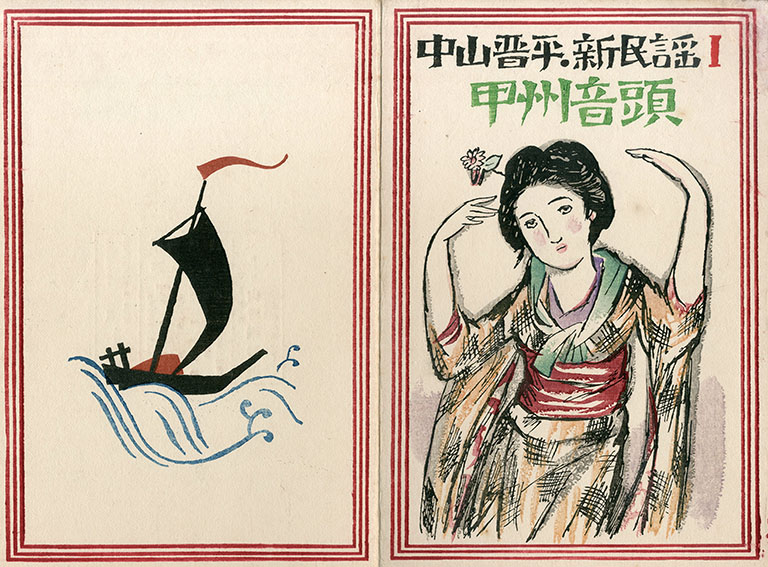 中山晋平.新民謡 I
甲州音頭